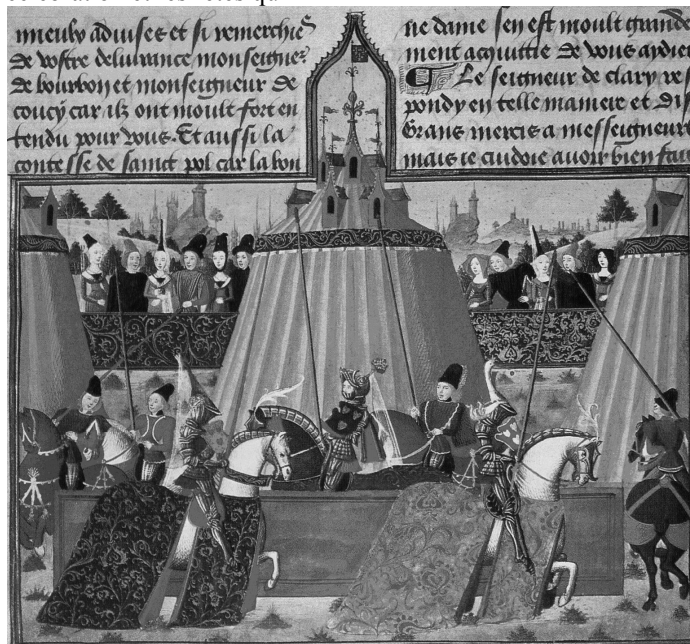 mieulx aduises et si remerchies
de vostre deliurance monseigneur
de bourbon et monseigneur de
coucy car ilz ont moult fort en
tendu pour vous. Et aussi la
contesse de sainct pol car la bon
ne dame sen est moult grande
ment acquittie de vous aydier
Le seigneur de clary re
pondy en telle maniere et dis
Grans mercis a messeigneurs
mais ie cuidoie auoir bien fait